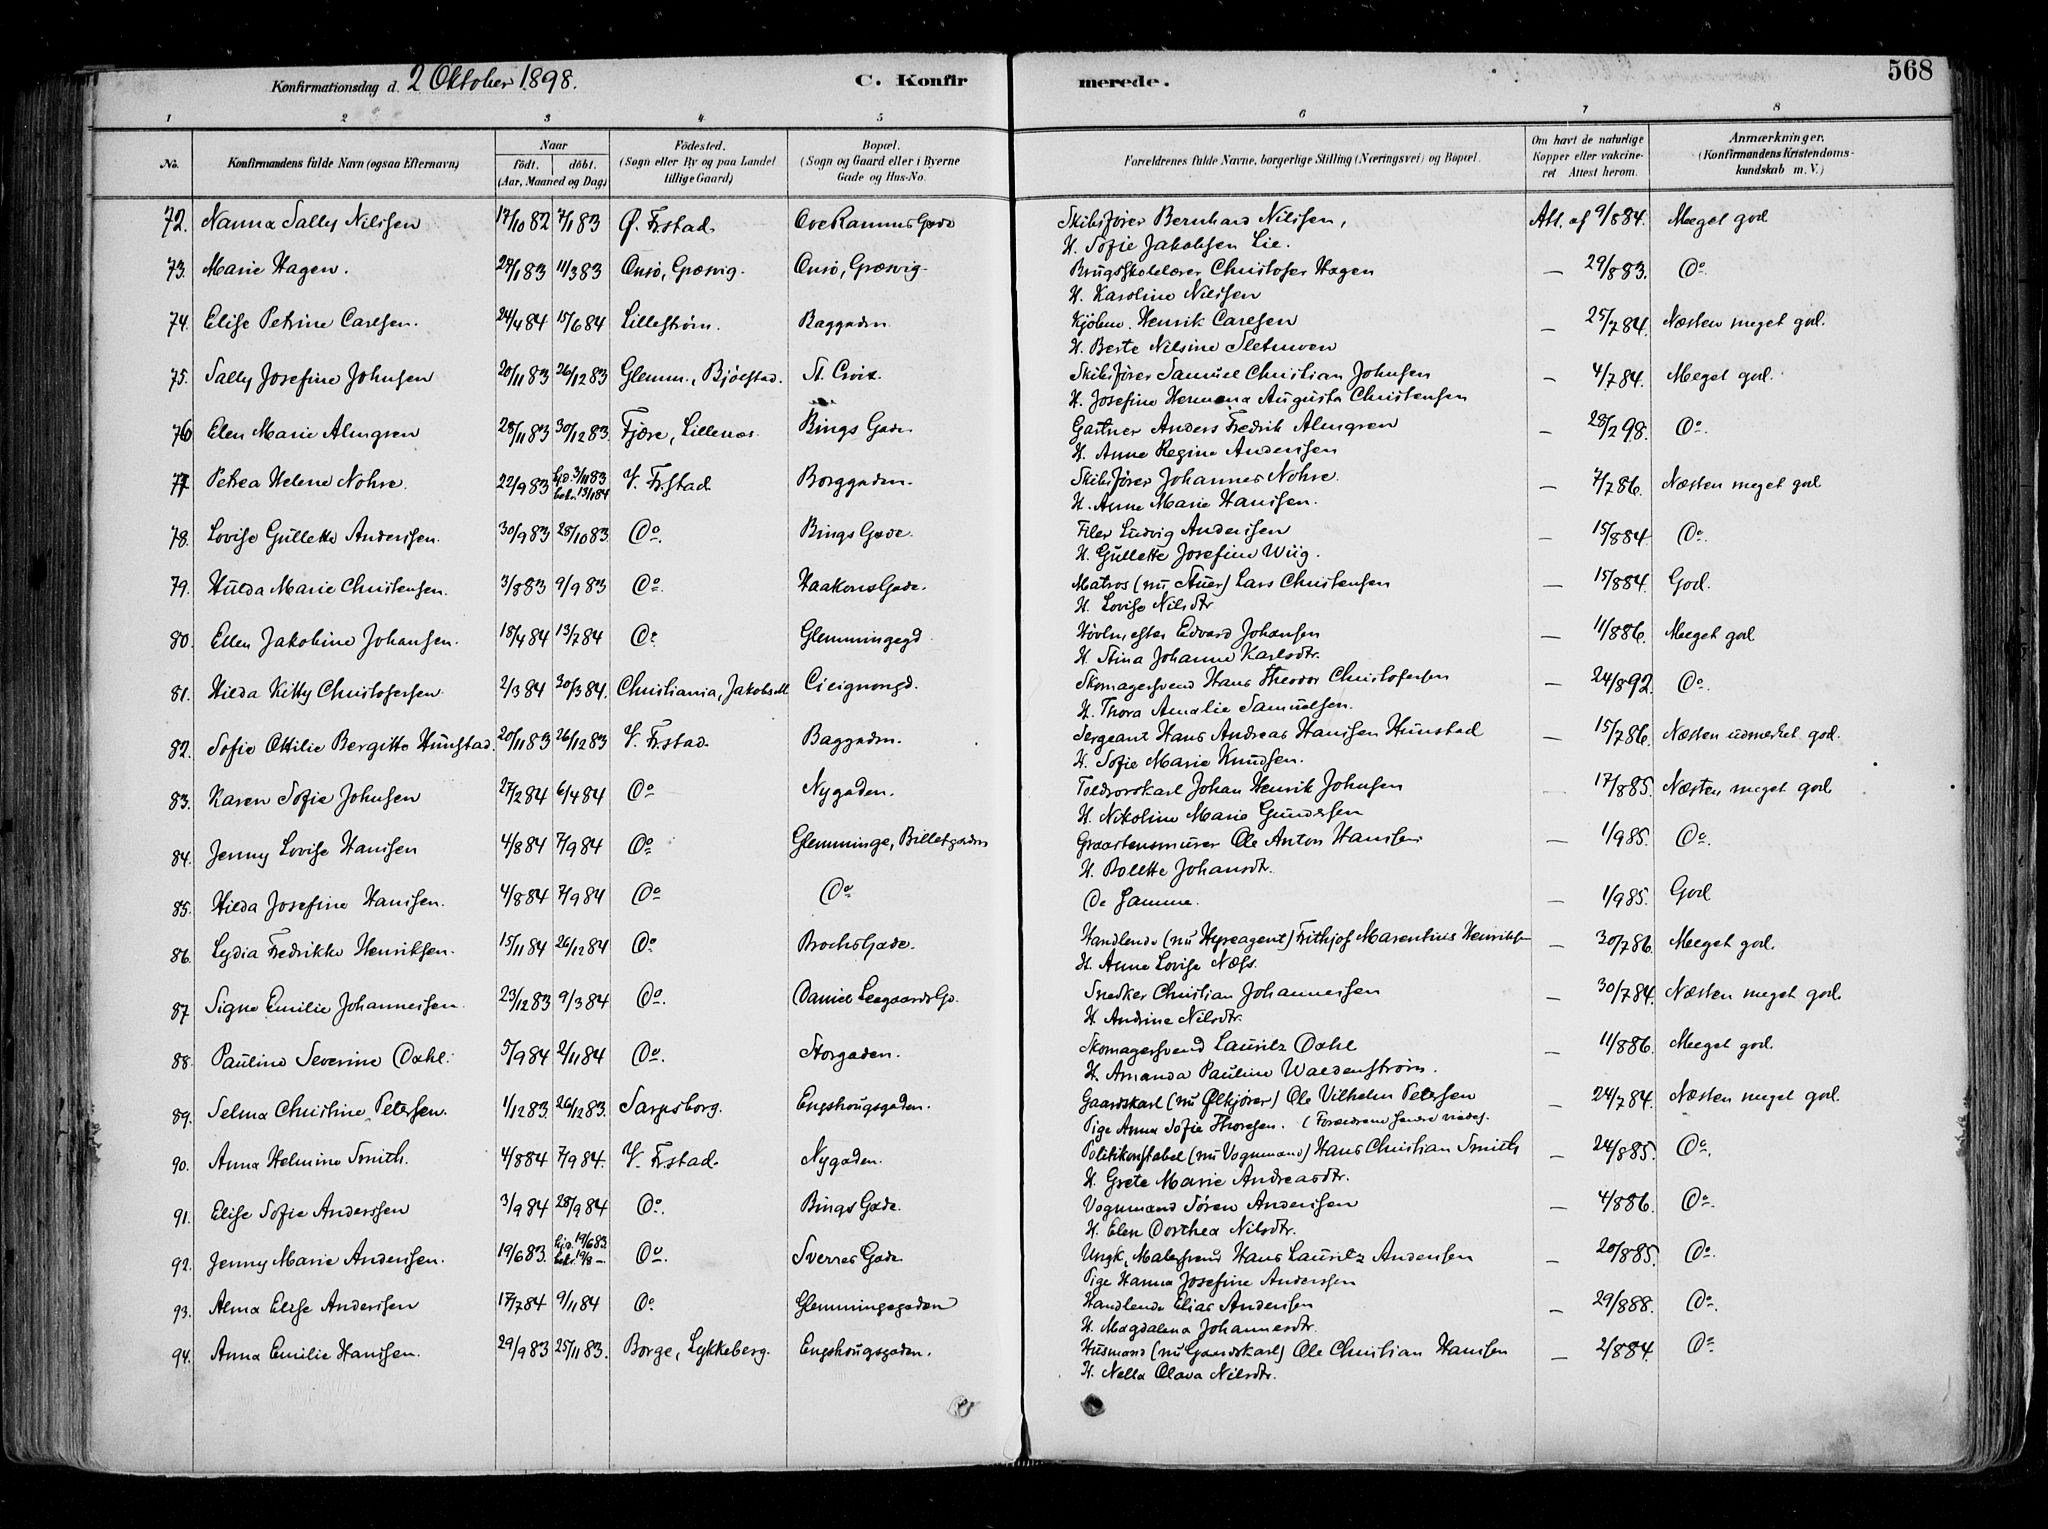 568
Konfirmationsdag d. 2 Oktober 1898. C. Konfirmerede.
1 2 3 4 5 6 7 8
No. Konfirmandens fulde Navn (ogsaa Efternavn) Naar födt. döbt. (Aar, Maaned og Dag) Födested. (Sogn eller By og paa Landet tillige Gaard) Bopæl. (Sogn og Gaard eller i Byerne Gade og Hus-No. Forældrenes fulde Navne, borgerlige Stilling (Næringsvei) og Bopæl. Om havt de naturlige Kopper eller vakcineret Attest herom. Anmærkninger. (Konfirmandens Kristendomskundskab m. V.)
72. Nanna Sally Nilssen 17/10 82 7/1 83 Ø. Fr.stad Ove Rammsgade Skibsfører Bernhard Nilssen, Att. af 9/8 84. Meget god
H. Sofie Jakobsen Lie.
73. Marie Hagen. 24/1 83 11/3 83 Onsö, Græsvig. Onsö, Græsvig. Brugsskolelærer Christofer Hagen — 29/8 83. Do.
H. Karoline Nilssen
74. Elise Petrine Carlsen. 24/4 84 15/6 84 Lillestrøm. Baggaden Kjøbm. Henrik Carlsen — 25/7 84. Næsten meget god.
H. Berte Nilsine Sletmoen
75. Sally Josefine Johnsen 20/11 83 26/12 83 Glemm., Bjölstad. St. Croix. Skibsfører Samuel Christian Johnsen — 4/7 84. Meget god.
H. Josefine Hermana Augusta Christensen
76 Elen Marie Almgren 28/11 83 30/12 83. Fjære, Lillenæs. Bings Gade Gartner Anders Fredrik Almgren — 28/2 98. Do.
H. Anne Regine Anderssen
77 Petrea Helene Nohre. 22/9 83 hjd. 3/11 83 bekr. 13/1 84 V. Fr.stad. Borggaden. Skibsfører Johannes Nohre. — 7/7 86. Næsten meget god
H. Anne Marie Hanssen.
78. Lovise Gullette Anderssen. 30/9 83 28/10 83. Do. Bings Gade. Filer Ludvig Anderssen — 15/8 84. Do.
H. Gullette Josefine Wiig.
79. Hulda Marie Christensen. 3/8 83 9/9 83 Do. Haakons Gade. Matros (nu Stuer) Lars Christensen — 15/8 84. God.
H. Lovise Nilsdtr.
80. Ellen Jakobine Johansen. 18/4 84 13/7 84 Do. Glemmingegd. Høvlmester Edvard Johansen — 11/8 86. Meget god
H. Stina Johanne Karlsdtr.
81. Hilda Kitty Christofersen. 2/3 84 30/3 84. Christiania, Jakobs M Cicignongd. Skomagersvend Hans Theodor Christofersen — 24/8 92. Do.
H. Thora Amalie Samuelsen.
82. Sofie Ottilie Bergitte Hunstad. 20/11 83 26/12 83 V. Fr.stad. Baggaden. Sergeant Hans Andreas Hanssen Hunstad — 15/7 86. Næsten udmerket god.
H. Sofie Marie Knudsen.
83. Karen Sofie Johnsen 27/2 84 6/4 84 Do Nygaden. Toldrorskarl Johan Henrik Johnsen — 17/8 85. Næsten meget god
H. Nikoline Marie Gundersen
84. Jenny Lovise Hanssen 4/8 84 7/9 84 Do Glemminge, Billetgaden Graastensmurer Ole Anton Hanssen — 1/9 85. Do.
H. Bolette Johansdtr.
85. Hilda Josefine Hanssen. 4/8 84 7/9 84 Do Do De Samme. — 1/9 85. God
86. Lydia Fredrikke Henriksen. 15/11 84 26/12 84 Do. Brochs Gade. Handlende (nu Hyreagent) Frithjof Marentius Henriksen — 30/7 86. Meget god.
H. Anne Lovise Næss.
87. Signe Emilie Johannessen. 23/12 83 9/3 84 Do. Daniel Leegaards Gd. Snedker Christian Johannessen — 30/7 84. Næsten meget god.
H. Andrine Nilsdtr.
88. Pauline Severine Dahl. 5/9 84 2/11 84 Do. Storgaden. Skomagersvend Lauritz Dahl — 11/8 86. Meget god.
H. Amanda Pauline Waldenstrøm.
89. Selma Christine Petersen. 1/12 83. 26/12 83. Sarpsborg. Engshougsgaden. Gaardskarl (nu Ølkjører) Ole Vilhelm Petersen — 24/7 84. Næsten meget god.
Pige Anna Sofie Thoresen. (Forældrene senere viede).
90. Anna Helmine Smith. 4/8 84 7/9 84. V. Fr.stad Nygaden. Politikonstabel (nu Vognmand) Hans Christian Smith — 24/8 85. Do.
H. Grete Marie Andreasdtr.
91. Elise Sofie Anderssen 3/9 84 28/9 84 Do. Bings Gade. Vognmand Søren Anderssen — 4/8 86. Do.
H. Elen Dorthea Nilsdtr.
92. Jenny Marie Anderssen. 19/6 83. hjd. 19/6 83. bekr. 19/8 — Do. Sverres Gade Ungk. Malersvend Hans Lauritz Andersen — 20/8 85. Do.
Pige Hanna Josefine Anderssen
93. Alma Elise Anderssen 17/7 84 9/11 84 Do. Glemmingegaden Handlende Elias Anderssen — 29/8 88. Do.
H. Magdalena Johannesdtr.
94. Anna Emilie Hanssen. 29/9 83 25/11 83. Borge, Lykkeberg. Engshougsgaden. Husmand (nu Gaardskarl) Ole Christian Hanssen — 2/8 84. Do
H. Nella Olava Nilsdtr.